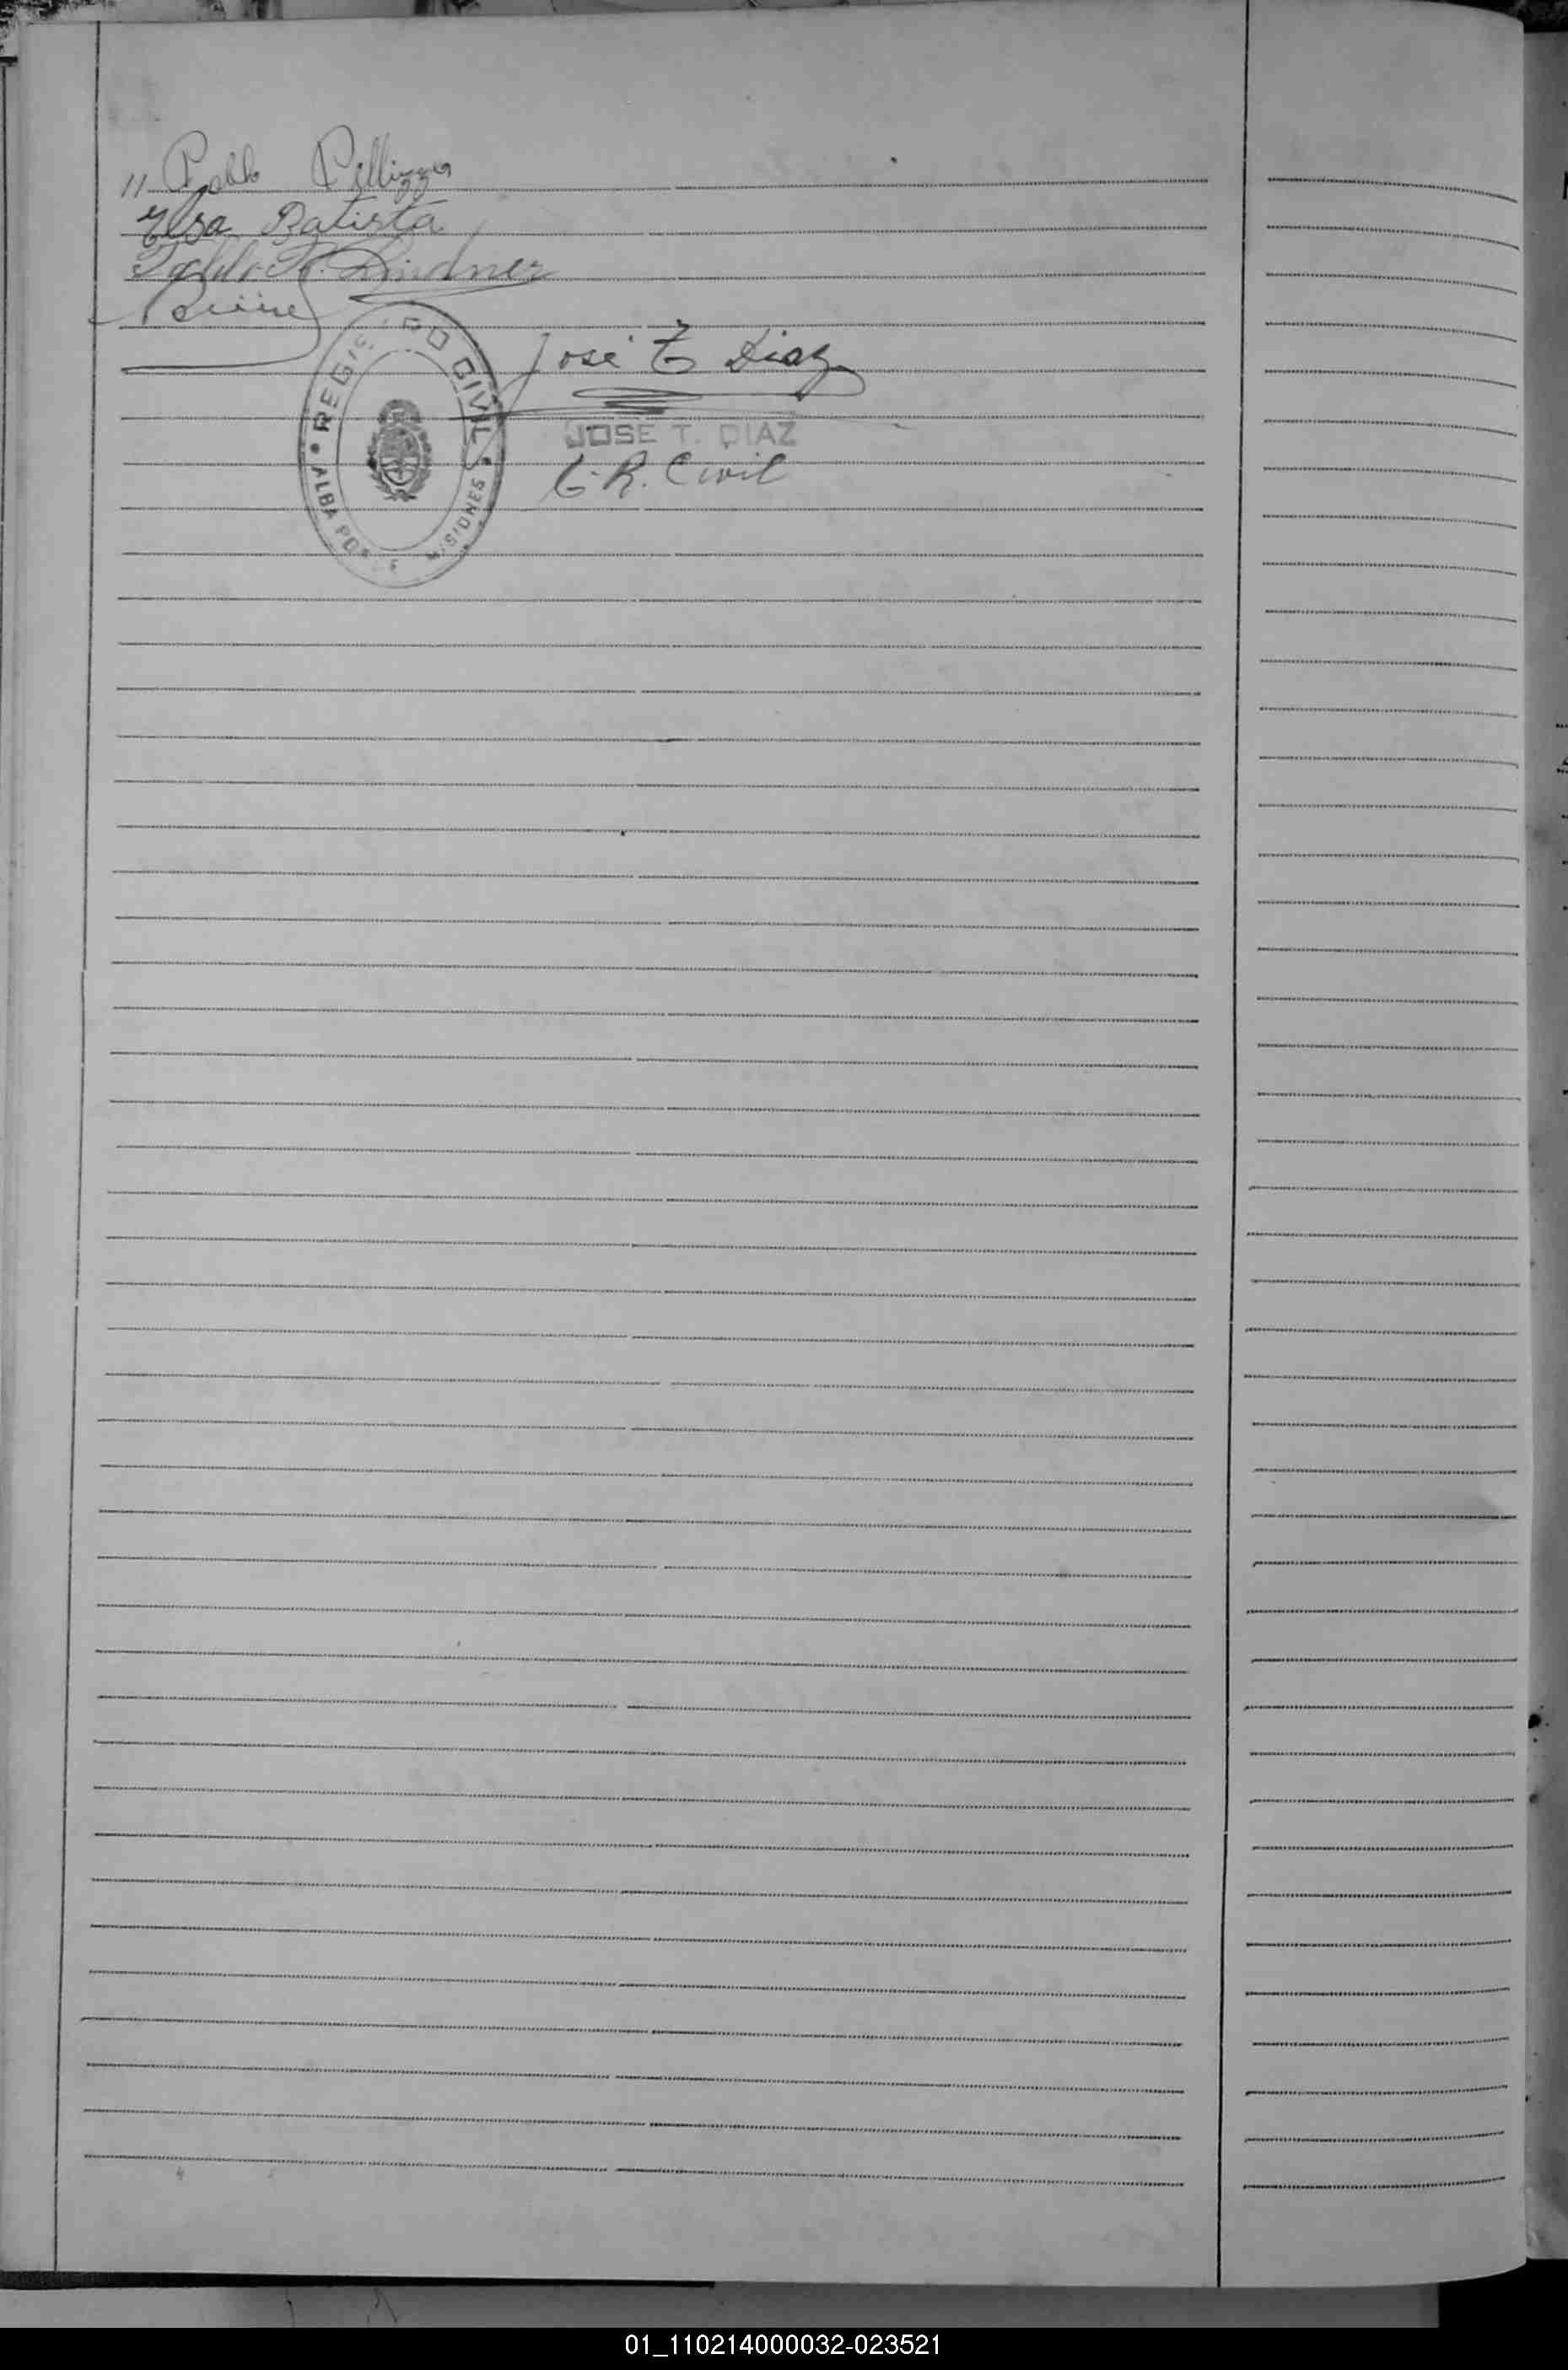 // Pablo Pillizzer
Elsa Batista
Pablo R. Lindner
REGISTRO CIVIL
ALBA POSSE MISIONES
José T Diaz
JOSE T. DIAZ
E. R. Civil
01_110214000032-023521